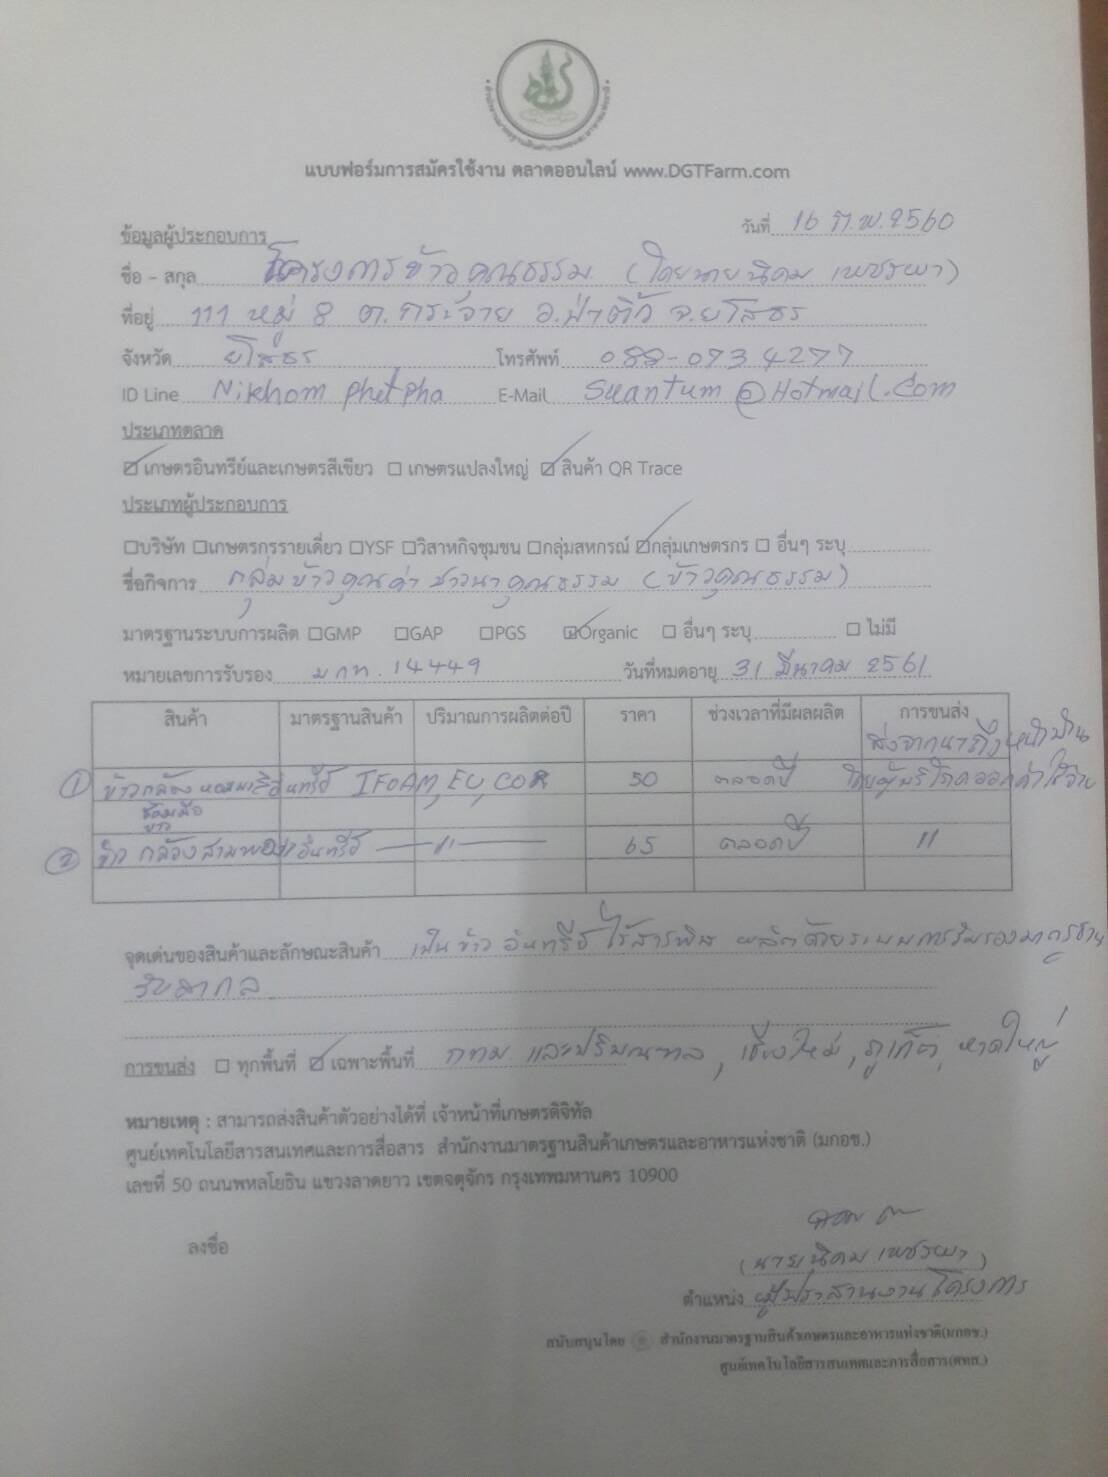 แบบฟอร์มการสมัครใช้งาน ตลาดออนไลน์ www.DGTFarm.com
วันที่ 16 ก.พ. 2560
ข้อมูลผู้ประกอบการ
ชื่อ - สกุล โครงการข้าวคุณธรรม (โดยนายนิคม เพชรผา)
ที่อยู่ 111 หมู่ 8 ต.กระจาย อ.ป่าติ้ว จ.ยโสธร
จังหวัด ยโสธร โทรศัพท์ 088-0734277
ID Line Nikhom phetpha E-Mail Suantum@Hotmail.com
ประเภทตลาด
☑ เกษตรอินทรีย์และเกษตรสีเขียว ☐ เกษตรแปลงใหญ่ ☑ สินค้า QR Trace
ประเภทผู้ประกอบการ
☐บริษัท ☐เกษตรกรรายเดี่ยว ☐YSF ☐วิสาหกิจชุมชน ☐กลุ่มสหกรณ์ ☑กลุ่มเกษตรกร ☐ อื่นๆ ระบุ
ชื่อกิจการ กลุ่มข้าวคุณค่า ชาวนาคุณธรรม (ข้าวคุณธรรม)
มาตรฐานระบบการผลิต ☐GMP ☐GAP ☐PGS ☑Organic ☐ อื่นๆ ระบุ ☐ ไม่มี
หมายเลขการรับรอง มกท. 14449 วันที่หมดอายุ 31 มีนาคม 2561
สินค้า มาตรฐานสินค้า ปริมาณการผลิตต่อปี ราคา ช่วงเวลาที่มีผลผลิต การขนส่ง
ส่งจากนาถึงหน้าบ้าน
① ข้าวกล้องหอมมะลิอินทรีย์ IFOAM, EU, COR 50 ตลอดปี โดยผู้บริโภคออกค่าใช้จ่าย
② ข้าวกล้องสาม อินทรีย์ —"— 65 ตลอดปี "
จุดเด่นของสินค้าและลักษณะสินค้า เป็นข้าวอินทรีย์ ไร้สารพิษ ผลิตด้วยระบบการรับรองมาตรฐาน
การขนส่ง ☐ ทุกพื้นที่ ☑ เฉพาะพื้นที่ กทม. และปริมณฑล, เชียงใหม่, ภูเก็ต, หาดใหญ่
หมายเหตุ : สามารถส่งสินค้าตัวอย่างได้ที่ เจ้าหน้าที่เกษตรดิจิทัล
ศูนย์เทคโนโลยีสารสนเทศและการสื่อสาร สำนักงานมาตรฐานสินค้าเกษตรและอาหารแห่งชาติ (มกอช.)
เลขที่ 50 ถนนพหลโยธิน แขวงลาดยาว เขตจตุจักร กรุงเทพมหานคร 10900
ลงชื่อ
(นายนิคม เพชรผา)
ตำแหน่ง ผู้ประสานงานโครงการ
สนับสนุนโดย สำนักงานมาตรฐานสินค้าเกษตรและอาหารแห่งชาติ(มกอช.)
ศูนย์เทคโนโลยีสารสนเทศและการสื่อสาร(ศทส.)